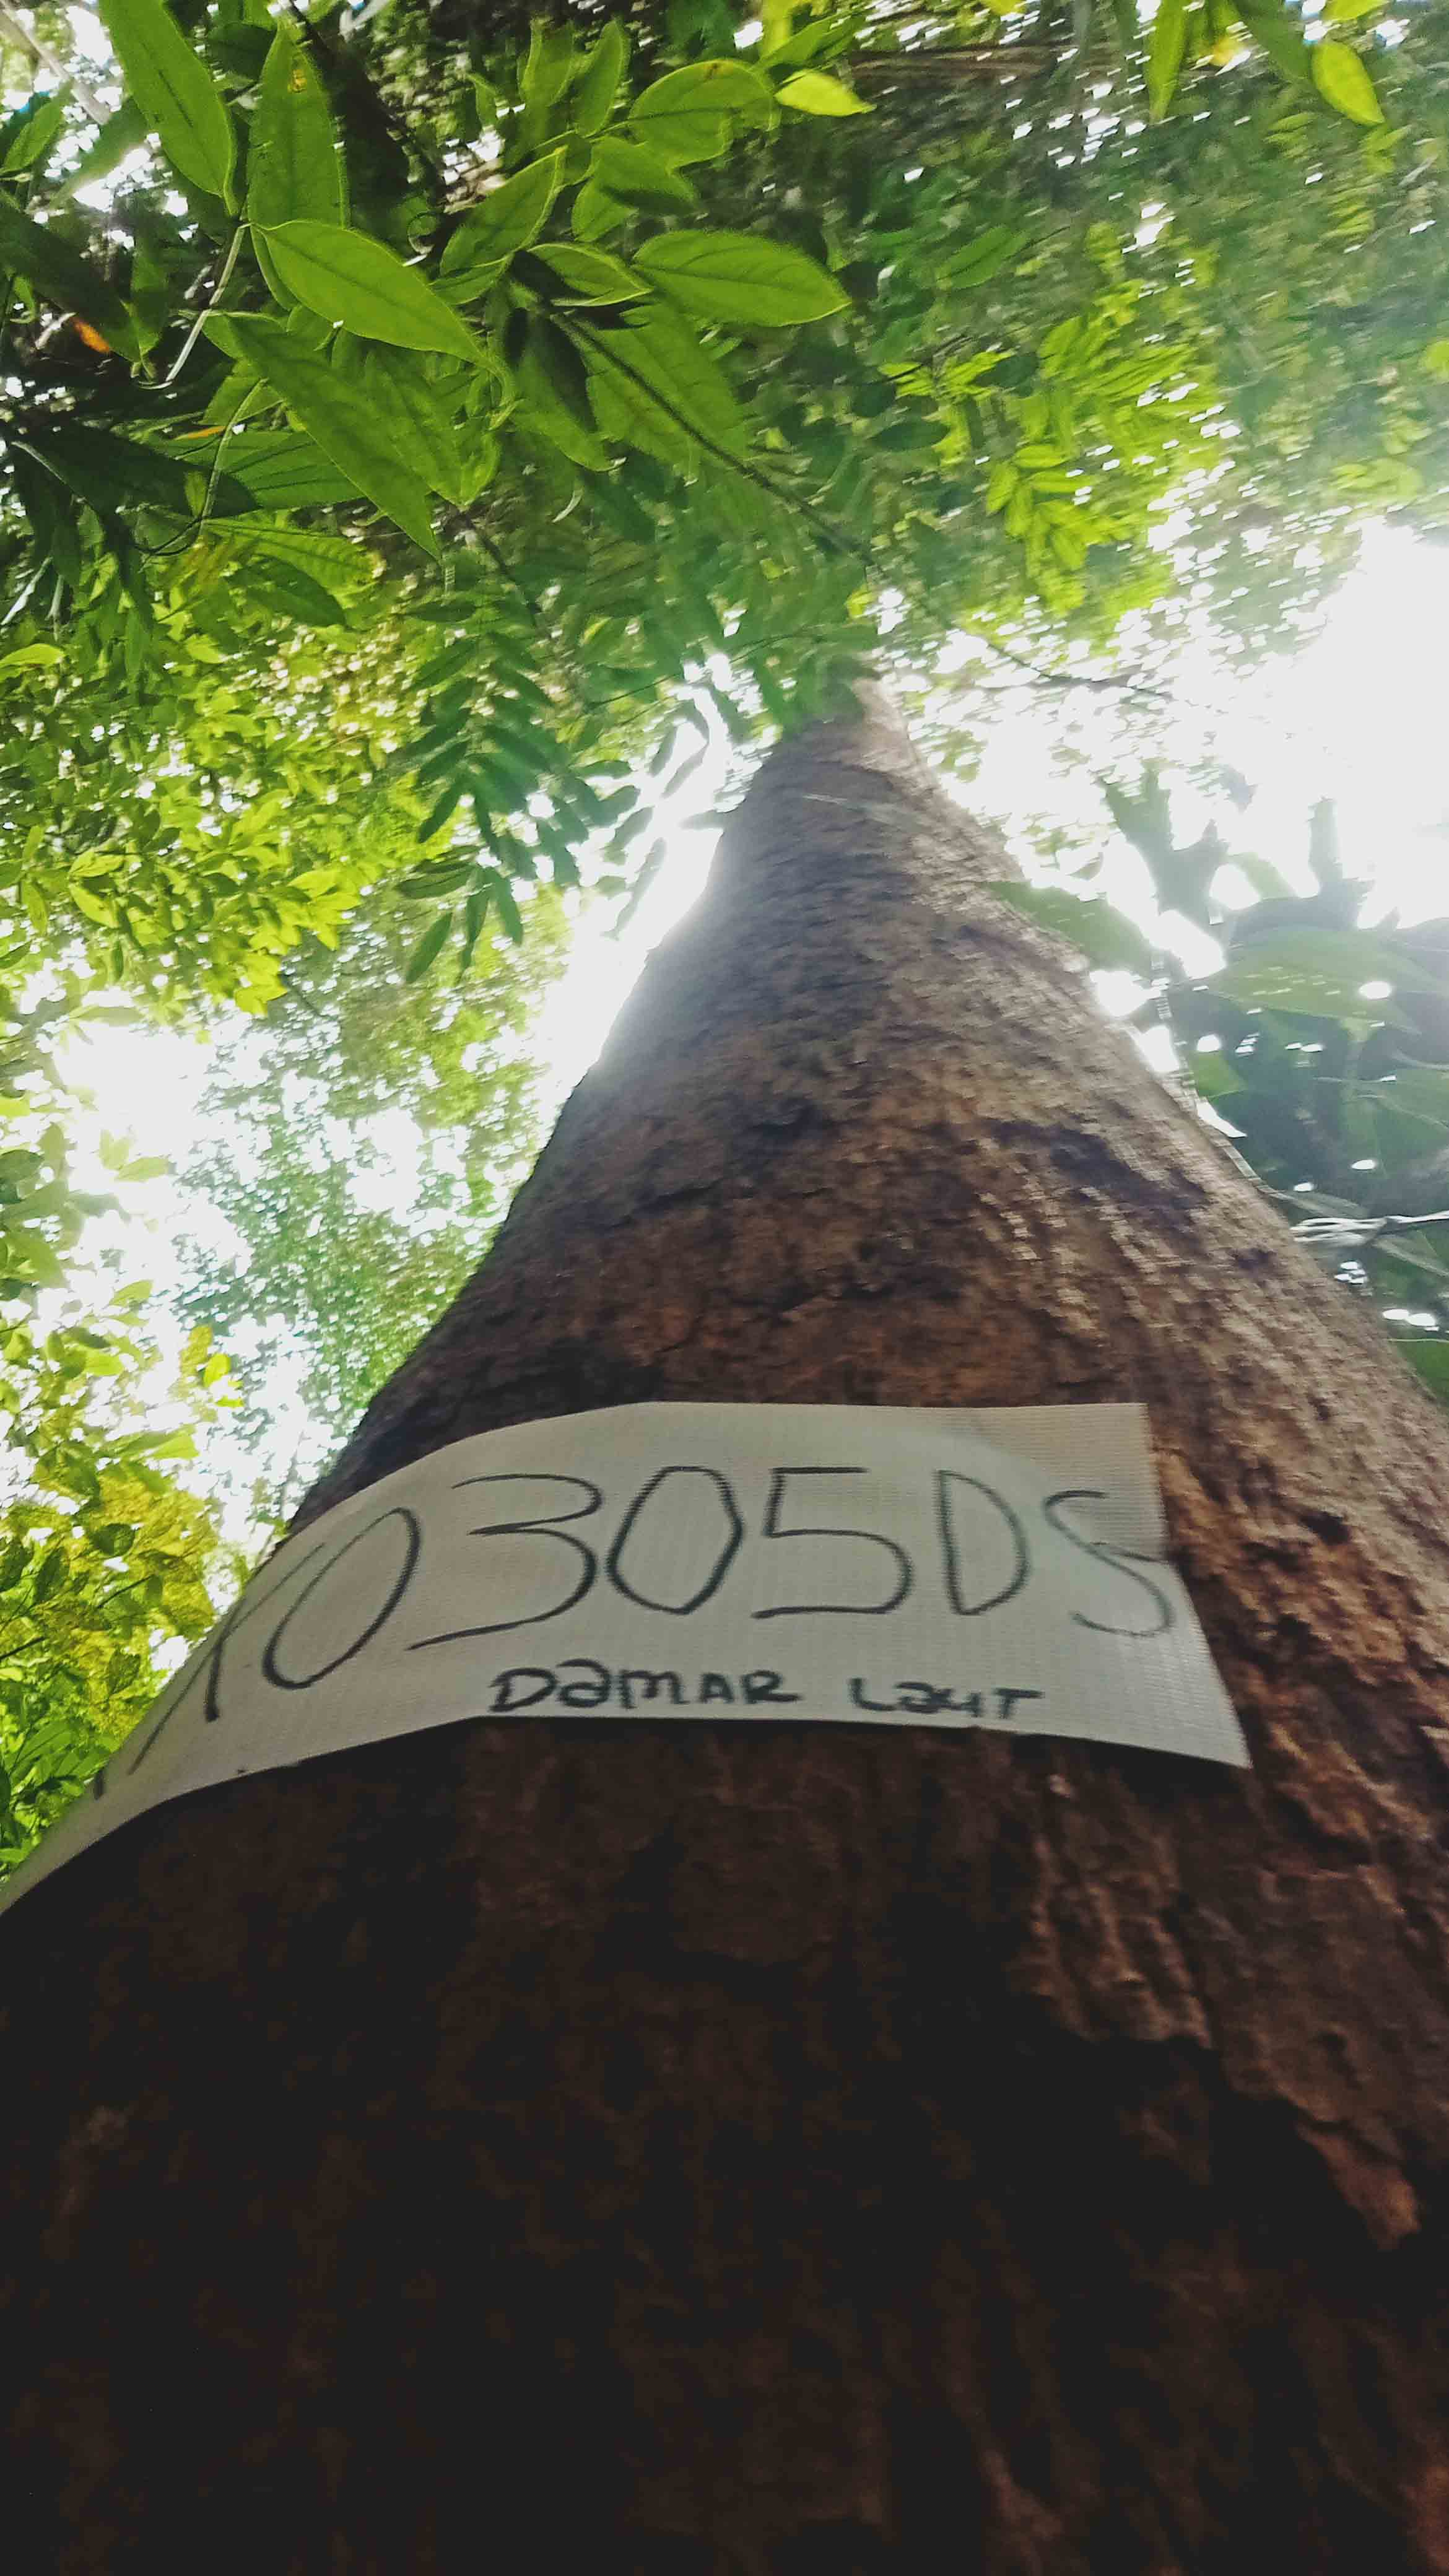 X0305DS
DamAR Laut